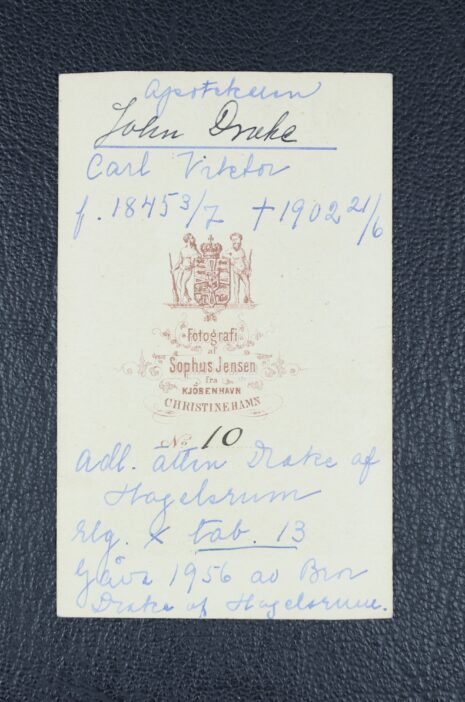 Apotekaren
John Drake
Carl Viktor
f. 1845 3/7 † 1902 21/6
Fotografi
af
Sophus Jensen
fra
KJÖBENHAVN
CHRISTINEHAMN
No 10
Adl. ätten Drake af
Hagelsrum
Elg. x tab. 13
Gåva 1956 av Bror
Drake af Hagelsrum.